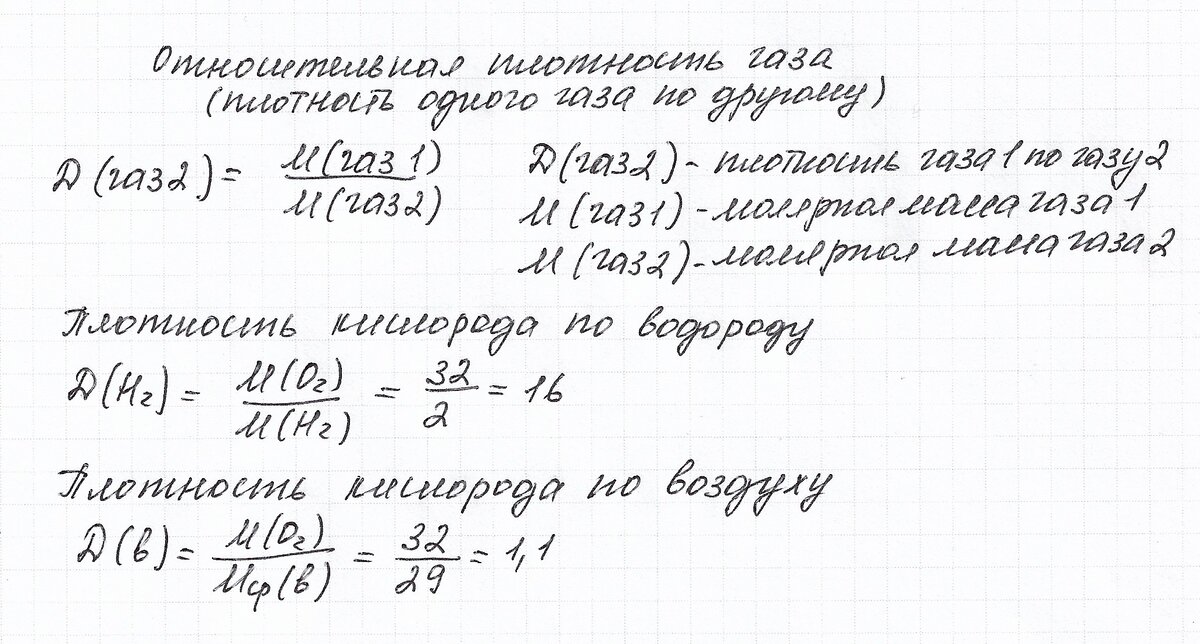 Относительная плотность газа
(плотность одного газа по другому)
D(газ2) = M(газ1) / M(газ2)
D(газ2) - плотность газа1 по газу2
M(газ1) - молярная масса газа1
M(газ2) - молярная масса газа2
Плотность кислорода по водороду
D(H₂) = M(O₂) / M(H₂) = 32 / 2 = 16
Плотность кислорода по воздуху
D(в) = M(O₂) / Mср(в) = 32 / 29 = 1,1